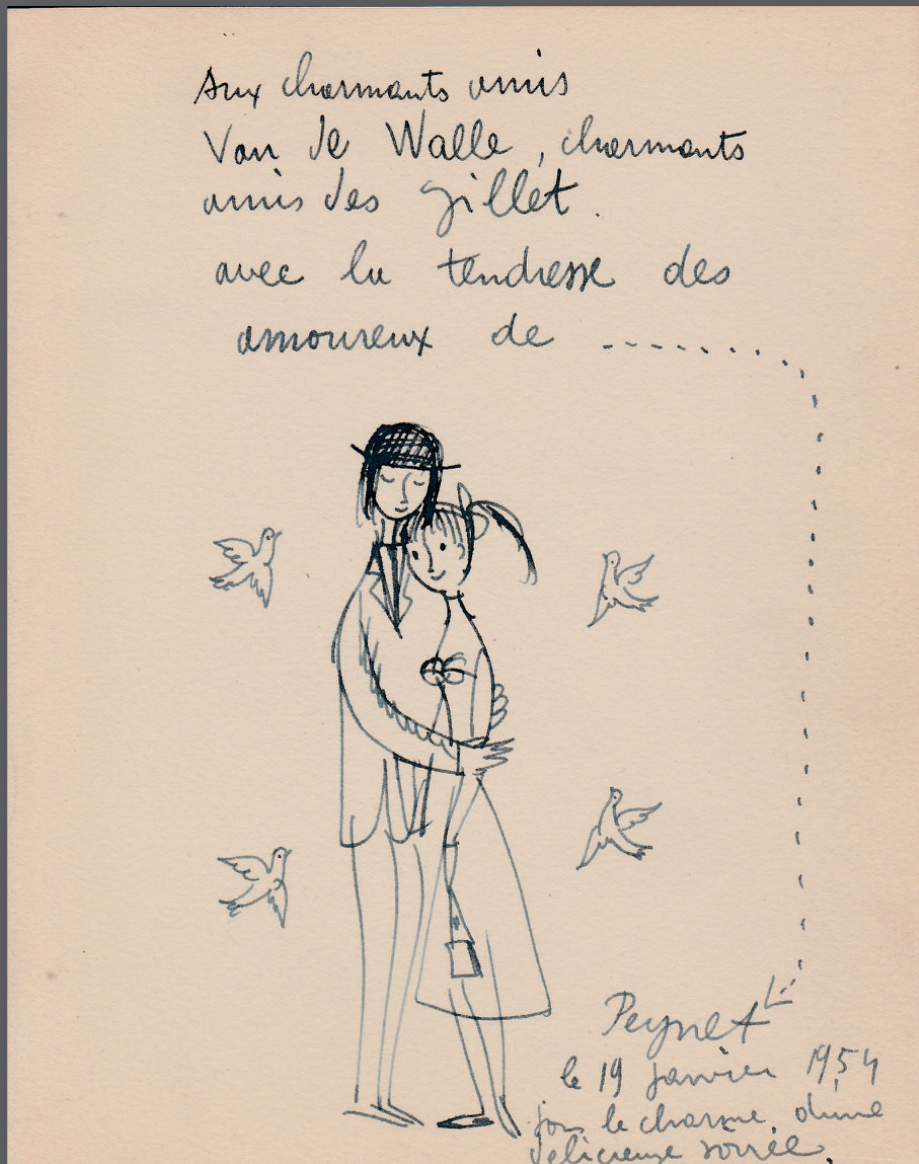 Aux charmants amis
Van de Walle, charmants
amis des Gillet.
avec la tendresse des
amoureux de .........
Peynet
le 19 janvier 1954
sous le charme d'une
délicieuse soirée.